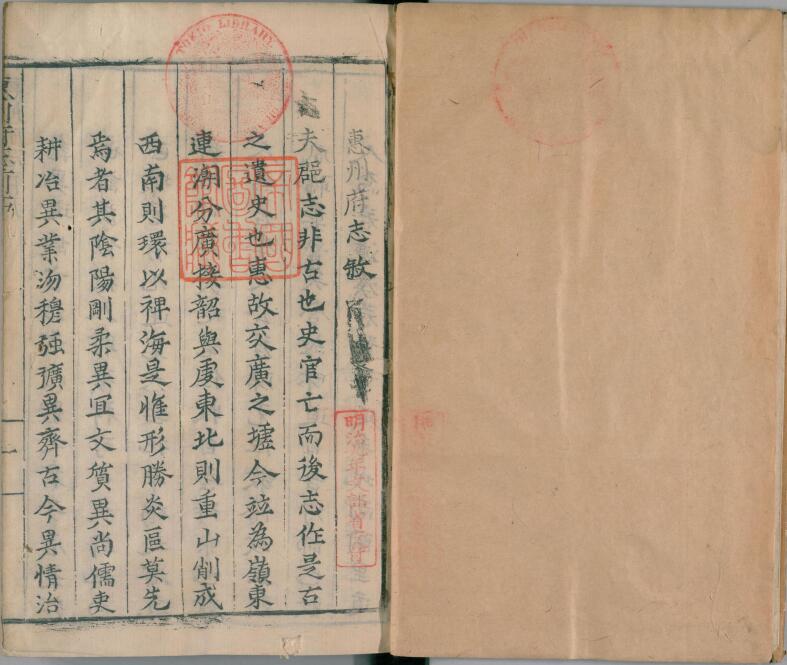 惠州府志敘
夫郡志非古也史官亡而後志作是古
之遺史也惠故交廣之墟今竝為嶺東
連潮分廣接韶與虔東北則重山削成
西南則環以裨海是惟形勝炎區莫先
焉者其陰陽剛柔異宜文質異尚儒吏
耕冶異業沕穆強獷異齊古今異情治
TOKIO LIBRARY
明治年文部省交付